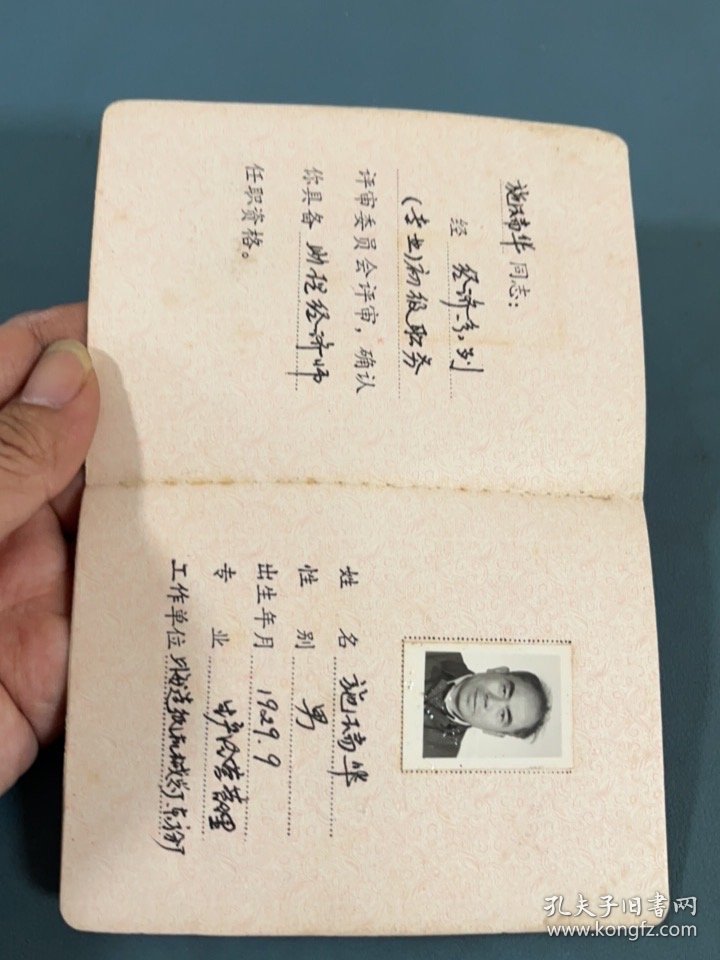 姓名 施瑞华
性别 男
出生年月 1929.9
专业 经营管理
工作单位 上海造纸机械
施瑞华 同志：
经 经济系列
(专业)高级职务
评审委员会评审，确认
你具备 高级经济师
任职资格。
孔夫子旧书网
www.kongfz.com